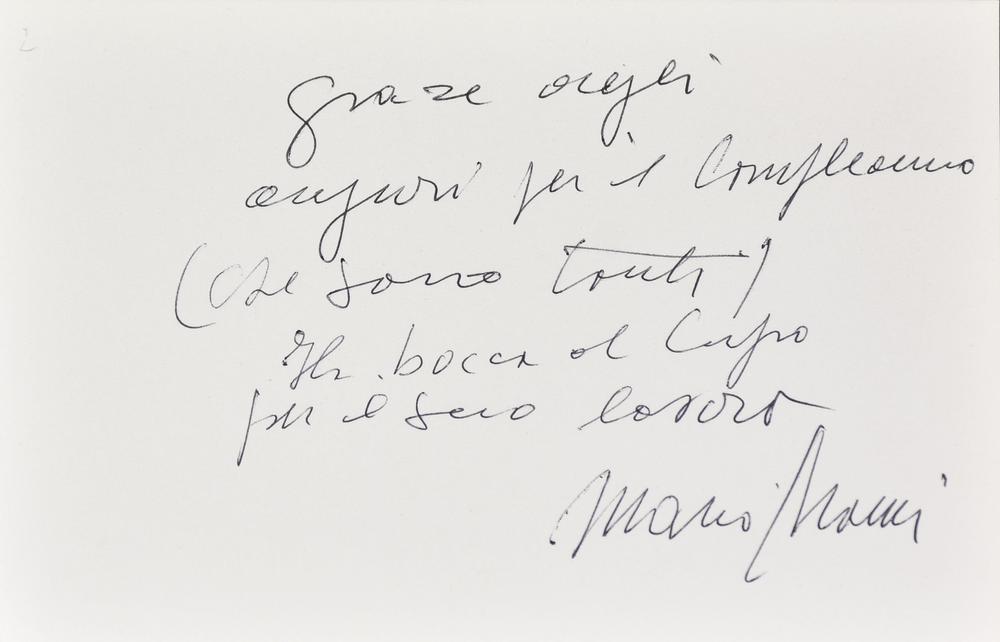 2
grazie degli
auguri per il Compleanno
(che sono tanti)
In bocca al Lupo
per il suo lavoro
Mario